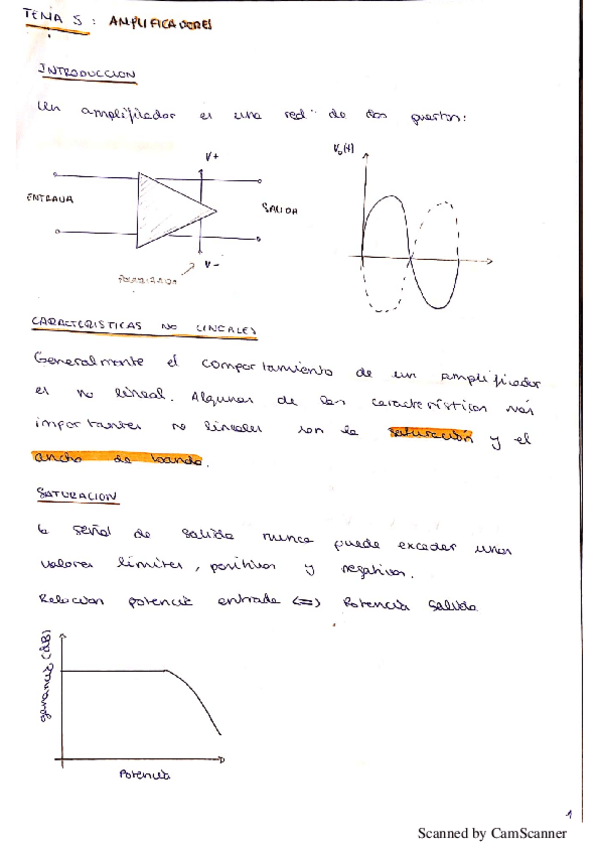 TEMA 5: AMPLIFICADORES
INTRODUCCION
Un amplificador es una red de dos puertos:
V+
V₀(t)
ENTRADA
SALIDA
V-
POLARIZACION
CARACTERISTICAS NO LINEALES
Generalmente el comportamiento de un amplificador
es no lineal. Algunas de las características más
importantes no lineales son la saturación y el
ancho de banda.
SATURACION
la señal de salida nunca puede exceder unos
valores límites, positivos y negativos.
Relacion potencia entrada (=) Potencia salida
ganancia (dB)
Potencia
1
Scanned by CamScanner